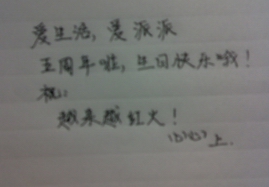 爱生活，爱派派
五周年啦，生日快乐哦！
祝：
越来越红火！
上.